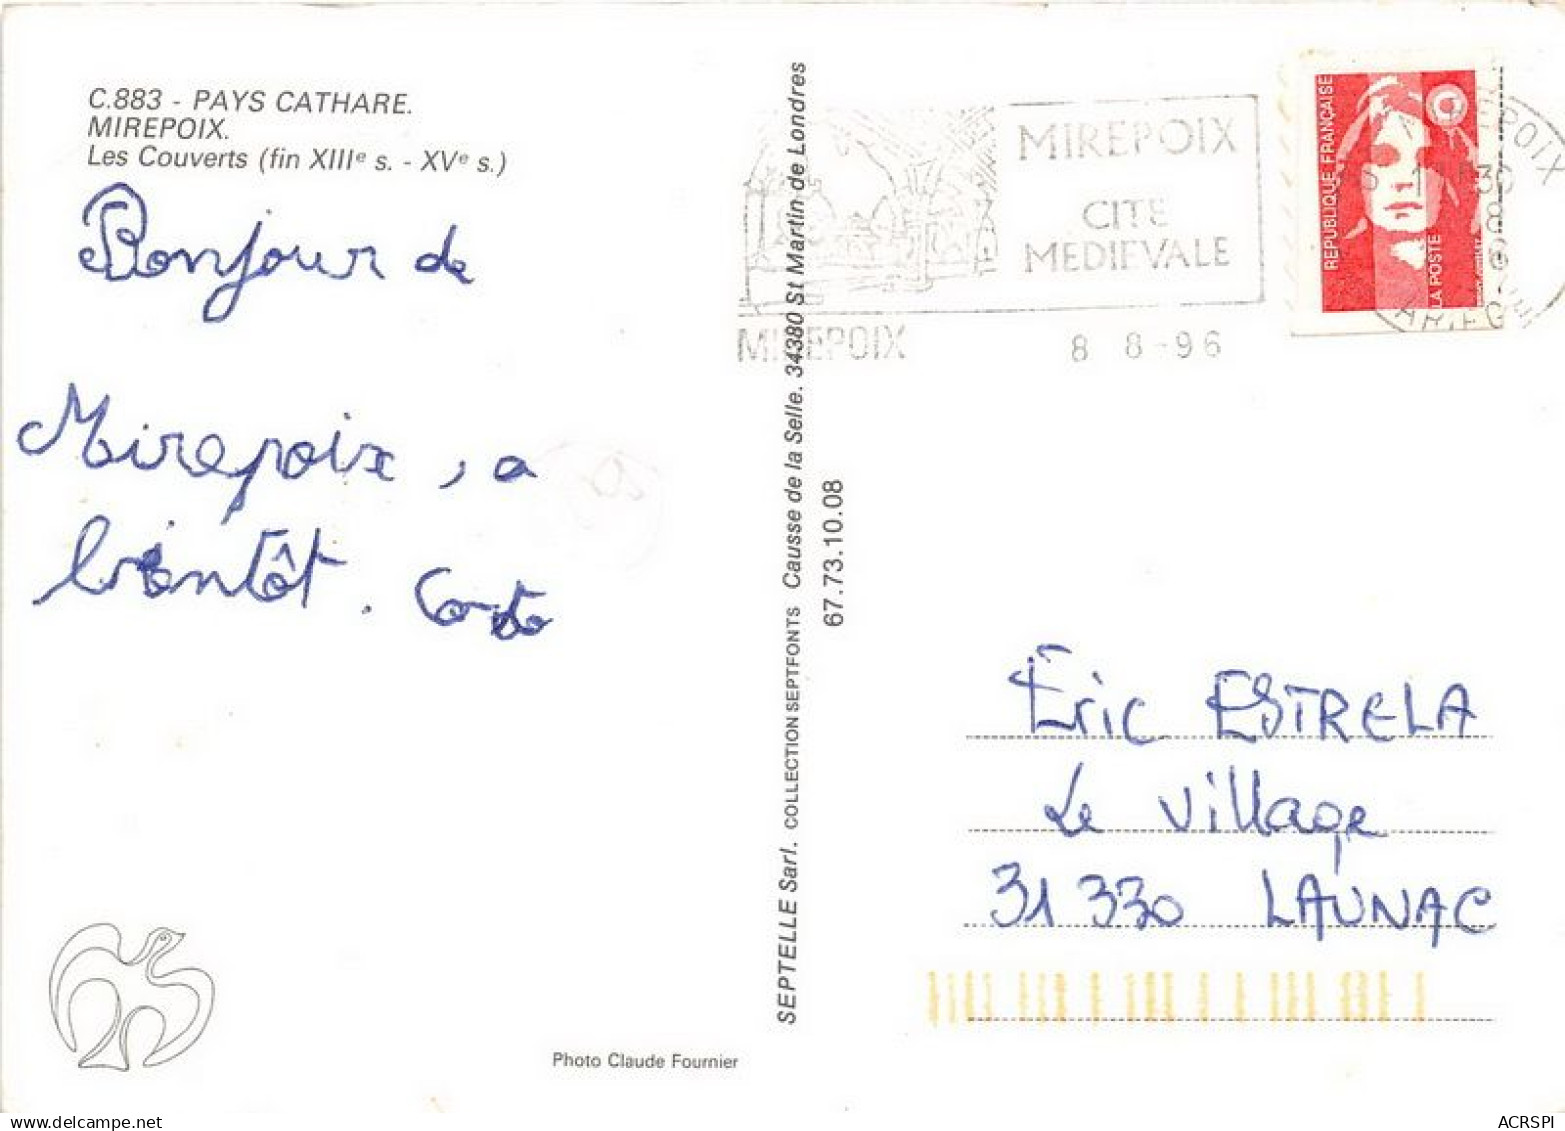 C.883 - PAYS CATHARE.
MIREPOIX.
Les Couverts (fin XIIIe s. - XVe s.)
Bonjour de
Mirepoix, a
bientôt.
Photo Claude Fournier
SEPTELLE Sarl. COLLECTION SEPTFONTS Causse de la Selle. 34380 St Martin de Londres
67.73.10.08
MIREPOIX
CITE
MEDIEVALE
MIREPOIX
8 8-96
REPUBLIQUE FRANÇAISE
LA POSTE
MIREPOIX
ARIEGE
Éric ESTRELA
Le Village
31 330 LAUNAC
ACRSPI